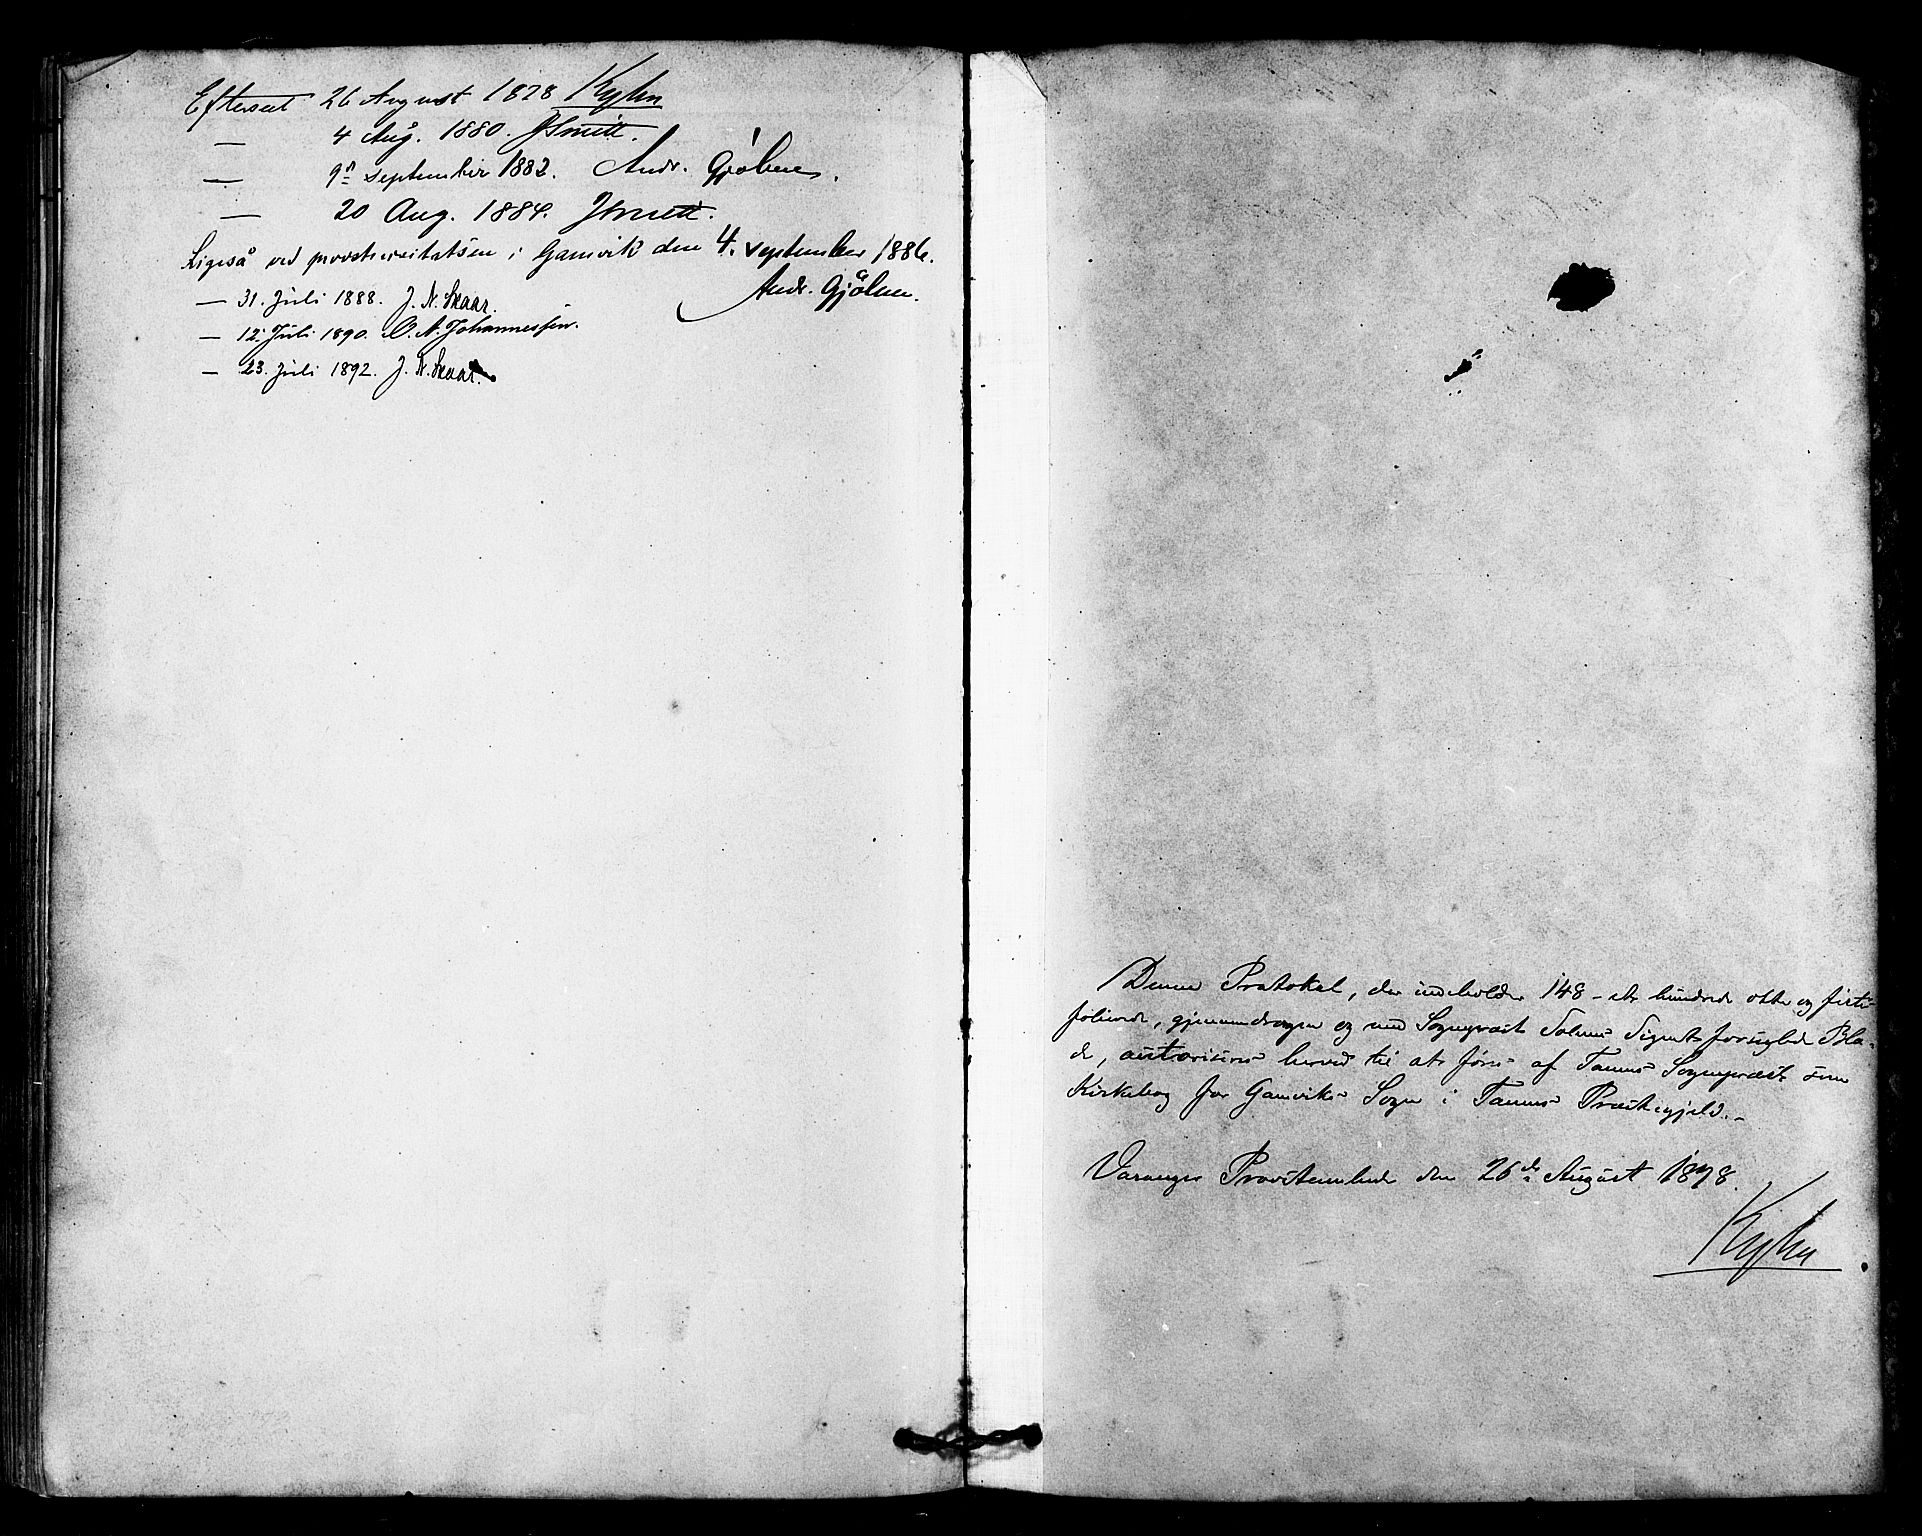 Efterseet 26 August 1878 Kyhn
— 4 Aug. 1880. JSmitt.
— 9n September 1882. Andr. Gjölme.
— 20 Aug. 1884. JSmitt.
Ligeså ved provstevisitatsen i Gamvik den 4. september 1886.
Andr. Gjölme.
— 31. Juli 1888. J. N. Skaar.
— 12. Juli 1890. O. N. Johannessen.
— 23. Juli 1892. J. N. Skaar.
Denne Protokol, der indeholder 148 - et hundrede otte og firti -
folierede, gjennemdragne og med Sognepræst Signet forseglede Bla-
de, autoriseres herved til at føres af Tanens Sognepræst som
Kirkebog for Gamviks Sogn i Tanens Præstegjeld. -
Varanger Provstembede den 26de August 1878.
Kyhn